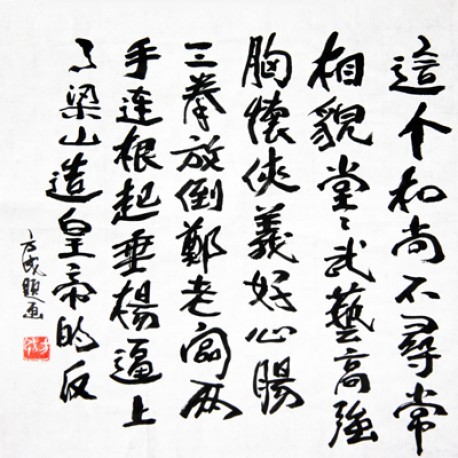 這个和尚不尋常
相貌堂〻武藝高強
胸懷俠義好心腸
三拳放倒鄭老富两
手連根起垂楊逼上
了梁山造皇帝的反
方成题画